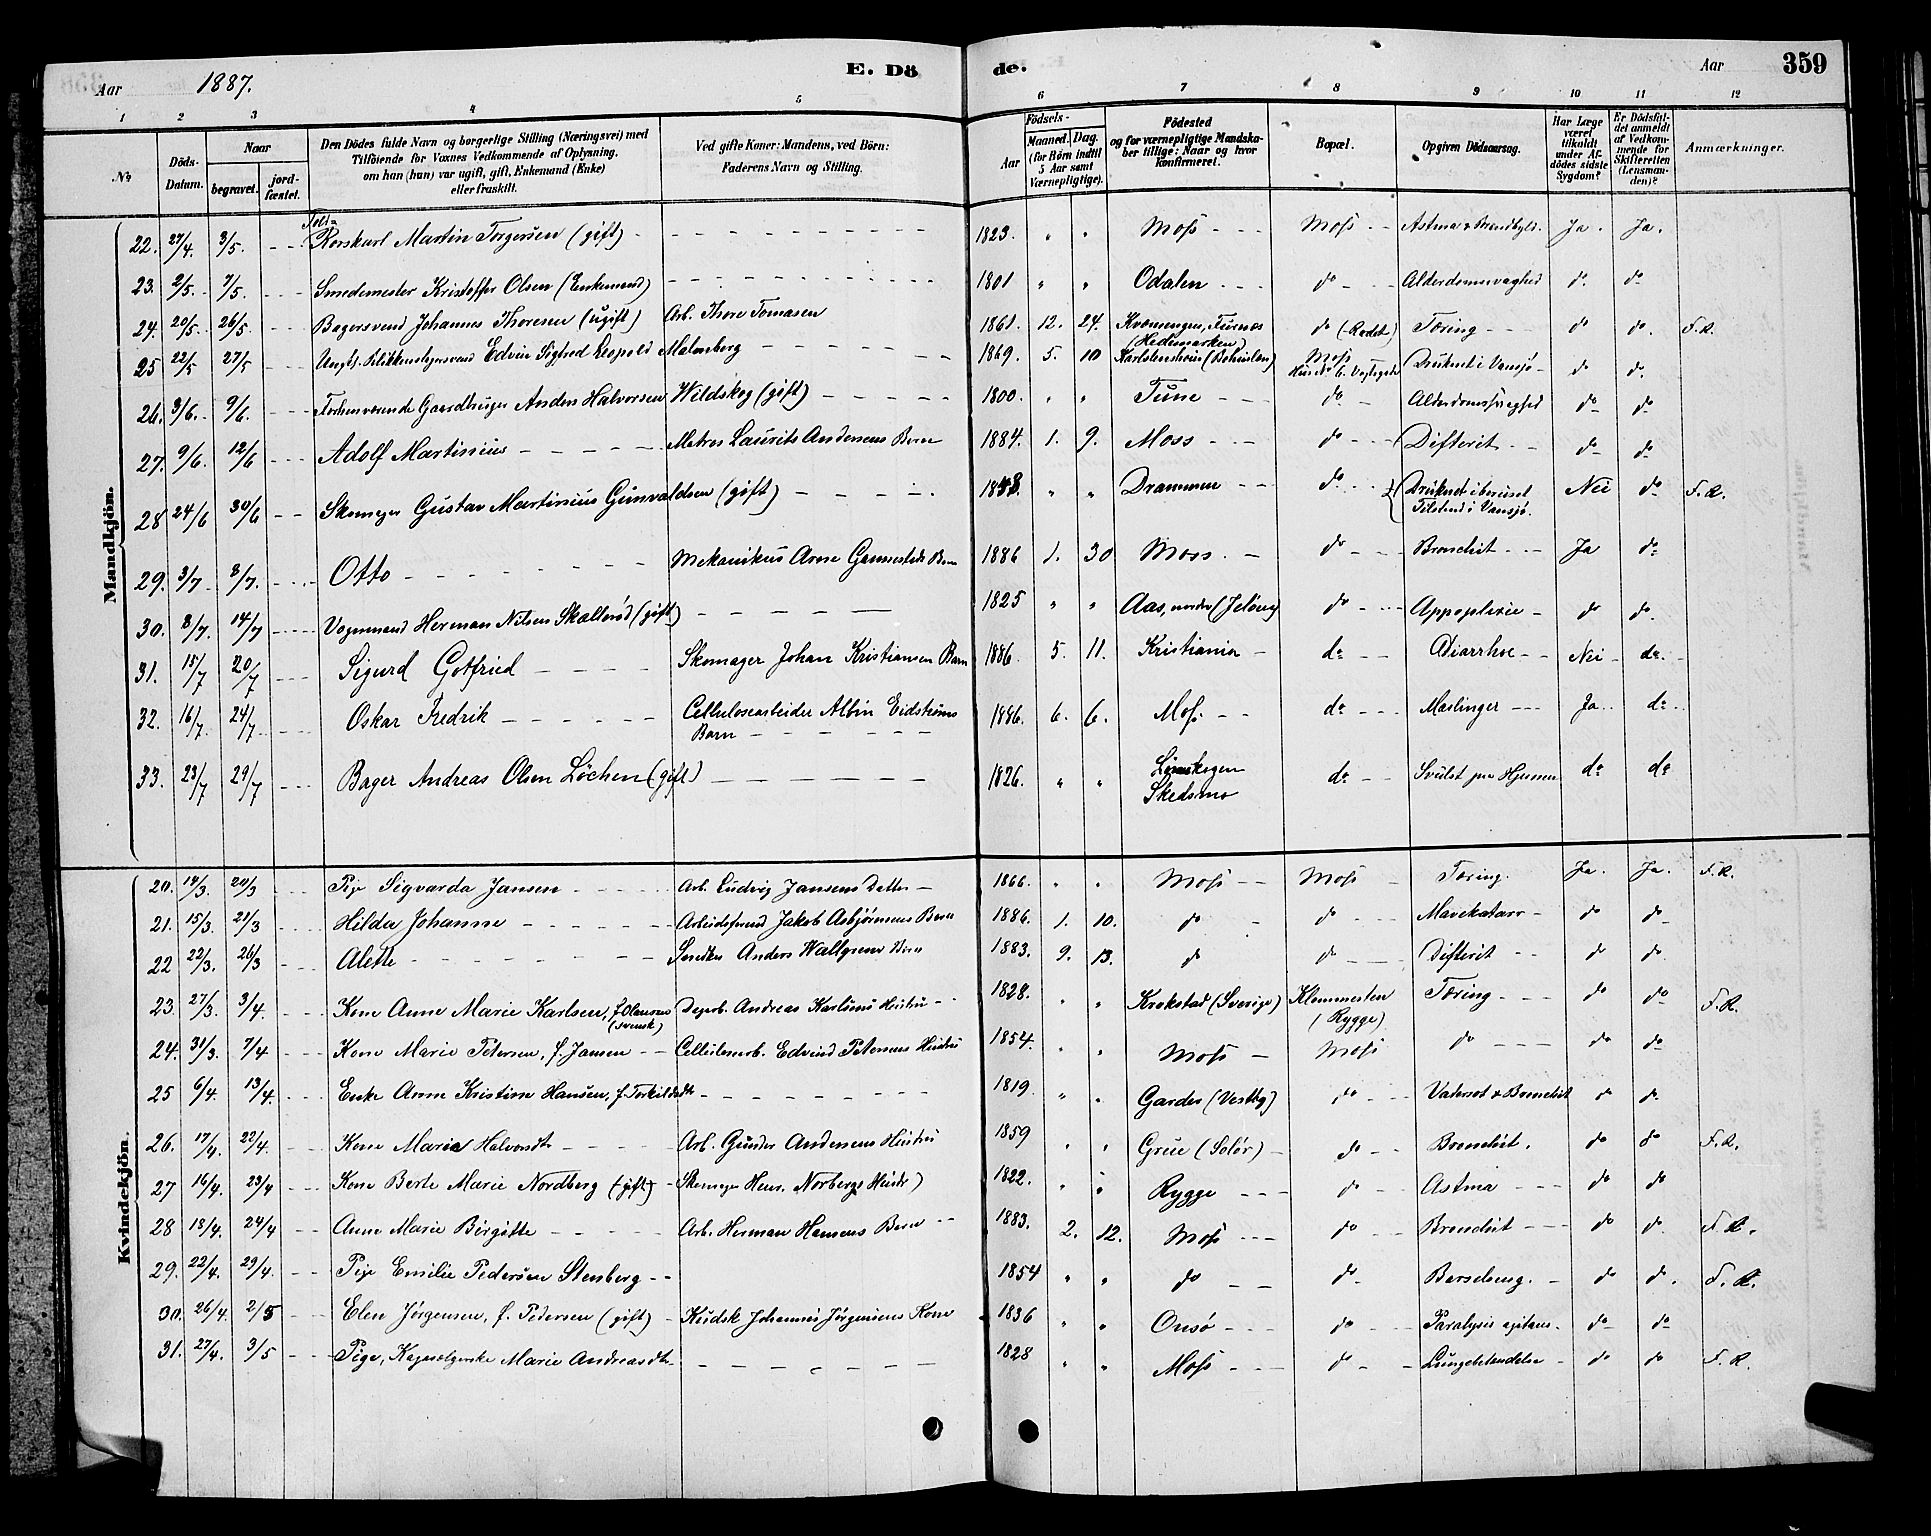 Aar 1887. E. Döde. Aar 359
1 2 3 4 5 6 7 8 9 10 11 12
No
Döds-Datum.
Naar
begravet. jordfæstet.
Den Dödes fulde Navn og borgerlige Stilling (Næringsvei) med
Tilföiende for Voxnes Vedkommende af Oplysning,
om han (hun) var ugift, gift, Enkemand (Enke)
eller fraskilt.
Ved gifte Koner: Mandens, ved Börn:
Faderens Navn og Stilling.
Födsels-
Aar Maaned. Dag.
(for Börn indtil
5 Aar samt
Værnepligtige).
Födested
og for værnepligtige Mandska-
ber tillige: Naar og hvor
konfirmeret.
Bopæl.
Opgiven Dödsaarsag.
Har Læge
været
tilkaldt
under Af-
dödes sidste
Sygdom?
Er Dödsfal-
det anmeldt
af Vedkom-
mende for
Skifteretten
(Lensman-
den)?
Anmærkninger.
Mandkjön.
22. 27/4. 3/5. Told-Rorskarl Martin Torgersen (gift) 1823. " " Moss Moss Astma Ja. Ja.
23. 2/5. 7/5. Smedemester Kristoffer Olsen (Enkemand) 1801 " " Odalen do Alderdomssvaghed do. do
24. 20/5. 26/5. Bagersvend Johannes Thoresen (ugift) Arb. Thore Tomasen 1861. 12. 24. Furnes (Hedemarken) do Tæring do do. F.R.
25 22/5 27/5 Ungk. Blikkenslagersvend Edvin Sigfred Leopold Malmberg 1869. 5. 10 (Bohuslen) Moss Hus No 6. Druknet i Vansjø do do.
26. 3/6. 9/6. Forhenværende Gaardbruger Anders Halvorsen Wildskog (gift) 1800. " " Tune do Alderdomssvaghed do do
27. 9/6. 12/6 Adolf Martinius Matros Laurits Andersens Barn 1884. 1. 9. Moss do Difterit do do
28 24/6 30/6 Skomager Gustav Martinius Gunvaldsen (gift) " " Drammen do Druknet i beruset Tilstand i Vansjø. Nei do F.R.
29. 3/7. 8/7. Otto Mekanikus Arne Barn 1886 1. 30 Moss. do Bronchit Ja do
30. 8/7. 14/7 Vognmand Herman Nilsen Skallerød (gift) 1825 " " Aas, nordre (Jeløen) do Appoplexie do do.
31. 15/7 20/7 Sigurd Gotfried Skomager Johan Kristiansen Barn 1886. 5. 11. Kristiania do Diarrhoe Nei do.
32. 16/7. 24/7. Oskar Fredrik Cellulosearbeider Albin Eidstrøms Barn 1886. 6. 6. Moss do Meslinger Ja. do.
33. 23/7 29/7 Bager Andreas Olsen Løchen (gift) 1826. " " Skedsmo do Svulst paa Hjernen do do
Kvindekjön.
20. 14/3. 20/3 Pige Sigvarda Jansen Arb. Ludvig Jansens Datter 1866. " " Moss Moss Tæring. Ja. Ja. F.R.
21. 15/3. 21/3 Hilda Johanne Arbeidsmand Jakob Asbjørnsens Barn 1886. 1. 10. do do Mavekatarr do do
22 22/3. 26/3 Alette Anders Wallgrens Barn 1883. 9. 13. do do Difterit do do.
23. 27/3. 3/4. Kone Anne Marie Karlsen, f. Olausen (svensk) Andreas Karlsens Hustru 1828. " " Krokstad (Sverige) (Rygge) Tæring do do F.R.
24. 31/3. 7/4 Kone Marie Petersen, f. Jansen Cellulosearb. Edvind Petersens Hustru 1854. " " Moss Moss do do do
25 6/4. 13/4. Enke Anne Kristine Hansen, f. Torkildsdtr 1819 " " Garder (Vestby) do Vatersot & Bronchit do do.
26. 17/4. 22/4. Kone Marie Halvorsdtr Arb. Gunder Andersens Hustru 1859 " " Grue (Solør) do Bronchit. do do F.R.
27 16/4. 23/4 Kone Berte Marie Nordberg (gift) Skomager Henr. Norbergs Hustr) 1822. " " Rygge do Astma do do
28 18/4. 24/4 Anne Marie Birgitte Arb. Herman Hansens Barn 1883. 2. 12. Moss do Bronchit do do. F.R.
29. 22/4. 29/4. Pige Emilie Pedersen Stenberg 1854 " " do do Barselseng. do do. F.R.
30. 26/4. 2/5 Elen Jørgensen, f. Pedersen (gift) Kudsk Johannes Jørgensens Kone 1836 " " Onsø do Paralysis agitans do do
31. 27/4. 3/5 Pige, Marie Andreasdtr 1828 " " Moss do Lungebetændelse do do F.R.